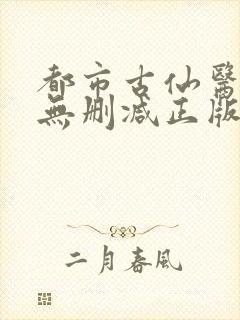 都市古仙醫
無刪減正版
二月春風